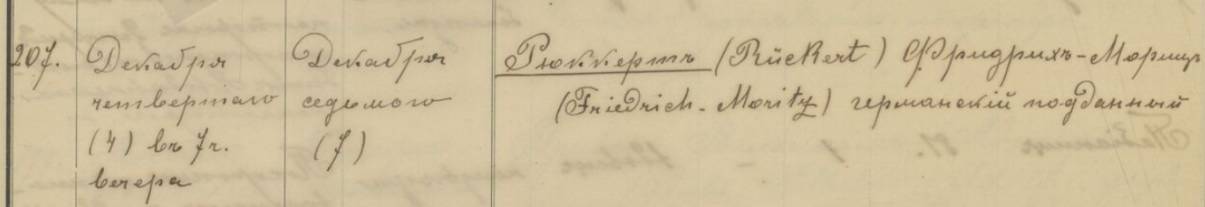 207. Декабря Декабря Рюккертъ (Rückert) Фридрихъ-Морицъ
четвертаго седьмого (Friedrich-Moritz) германскій подданный
(4) въ 7 ч. (7)
вечера